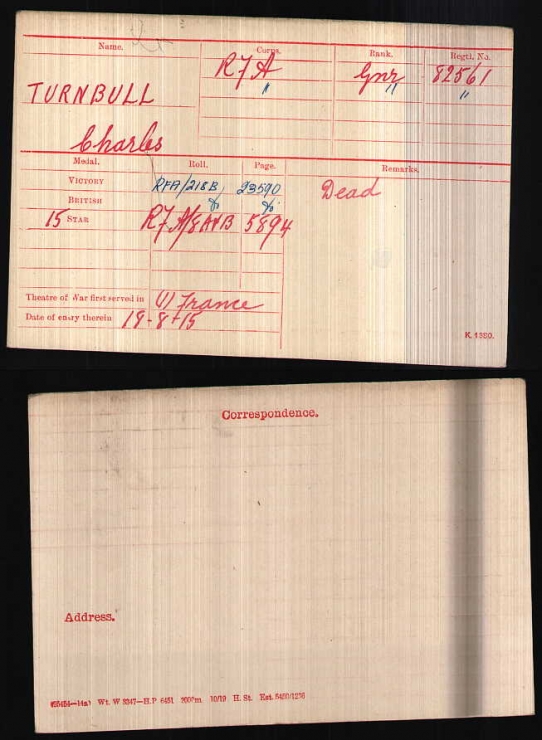 Name. Corps. Rank. Regtl. No.
TURNBULL RFA Gnr 82561
" " "
Charles
Medal. Roll. Page. Remarks.
VICTORY RFA/218B. 23590 Dead
BRITISH do do
15 STAR RFA/8AVB 5894
Theatre of War first served in (1) France
Date of entry therein 19-8-15
K. 1380.
Correspondence.
Address.
Wt. W 8347—H.P 6451 10/19 H. St.